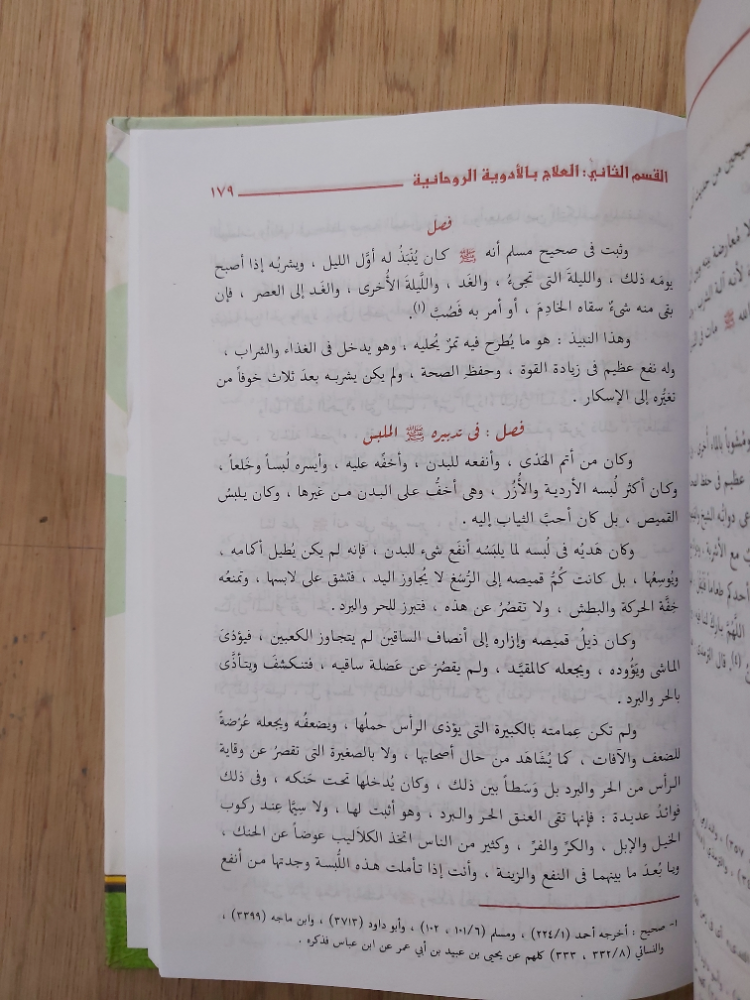 القسم الثاني: العلاج بالأدوية الروحانية ١٧٩
فصل
وثبت فى صحيح مسلم أنه ﷺ كان يُنْبَذُ له أوَّل الليل ، ويشربُه إذا أصبح
يومَه ذلك ، والليلةَ التى تجىءُ ، والغَد ، واللَّيلةَ الأُخرى ، والغَد إلى العصر ، فإن
بقى منه شىءٌ سقاه الخادِمَ ، أو أمر به فَصُبَّ (١).
وهذا النبيذ : هو ما يُطرح فيه تمرٌ يُحليه ، وهو يدخل فى الغذاء والشراب ،
وله نفع عظيم فى زيادة القوة ، وحفظِ الصحة ، ولم يكن يشربه بعدَ ثلاث خوفاً من
تغيُّره إلى الإسكار .
فصل : فى تدبيره ﷺ الملبس
وكان من أتم الهَدْى ، وأنفعه للبدن ، وأخفِّه عليه ، وأيسره لُبساً وخَلعاً ،
وكان أكثر لُبسه الأردية والأُزُر ، وهى أخفُّ على البدن من غيرها ، وكان يلبسُ
القميص ، بل كان أحبَّ الثياب إليه .
وكان هَديُه فى لُبسه لما يلبَسُه أنفَع شىء للبدن ، فإنه لم يكن يُطيل أكمامه ،
ويُوسِعُها ، بل كانت كُمُّ قميصه إلى الرُّسْغ لا يُجاوز اليد ، فتشق على لابسها ، وتمنعُه
خِفَّة الحركة والبطش ، ولا تقصُرُ عن هذه ، فتبرز للحر والبرد .
وكان ذيلُ قميصه وإزاره إلى أنصاف الساقين لم يتجاوز الكعبين ، فيؤذىَ
الماشى ويَؤُوده ، ويجعله كالمقيَّد ، ولم يقصُرْ عن عَضلة ساقيه ، فتنكشفَ ويتأذَّى
بالحر والبرد .
ولم تكن عِمامته بالكبيرة التى يؤذى الرأس حملُها ، ويضعفُه ويجعله عُرْضةً
للضعف والآفات ، كما يُشَاهَد من حال أصحابها ، ولا بالصغيرة التى تقصرُ عن وقاية
الرأس من الحر والبرد بل وَسَطاً بين ذلك ، وكان يُدخلها تحت حَنكه ، وفى ذلك
فوائدُ عديدة : فإنها تقى العنق الحر والبرد ، وهو أثبت لها ، ولا سِيَّما عِند ركوب
الخيل والإبل ، والكرِّ والفرِّ ، وكثير من الناس اتخذ الكلاليب عوضاً عن الحنك ،
ويا بُعدَ ما بينهما فى النفع والزينة ، وأنت إذا تأملت هذه اللُّبسة وجدتها من أنفع
١- صحيح : أخرجه أحمد (٢٢٤/١) ، ومسلم (١٠١/٦ ، ١٠٢) ، وأبو داود (٣٧١٣) ، وابن ماجه (٣٣٩٩) ،
والنسائي (٣٣٢/٨ ، ٣٣٣) كلهم عن يحيى بن عبيد بن أبي عمر عن ابن عباس فذكره .